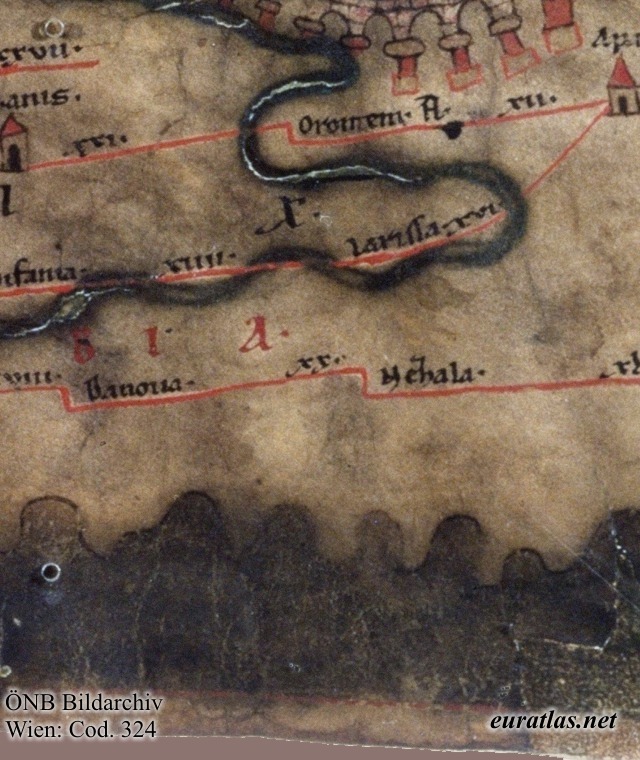 xvii.
anis.
Apa
xxi.
Orontem. fl.
xii.
X.
Larissa. xvi.
ifania.
xiiii.
B I A.
viii.
Bavoua.
xx.
Mehala.
ÖNB Bildarchiv
Wien: Cod. 324
euratlas.net